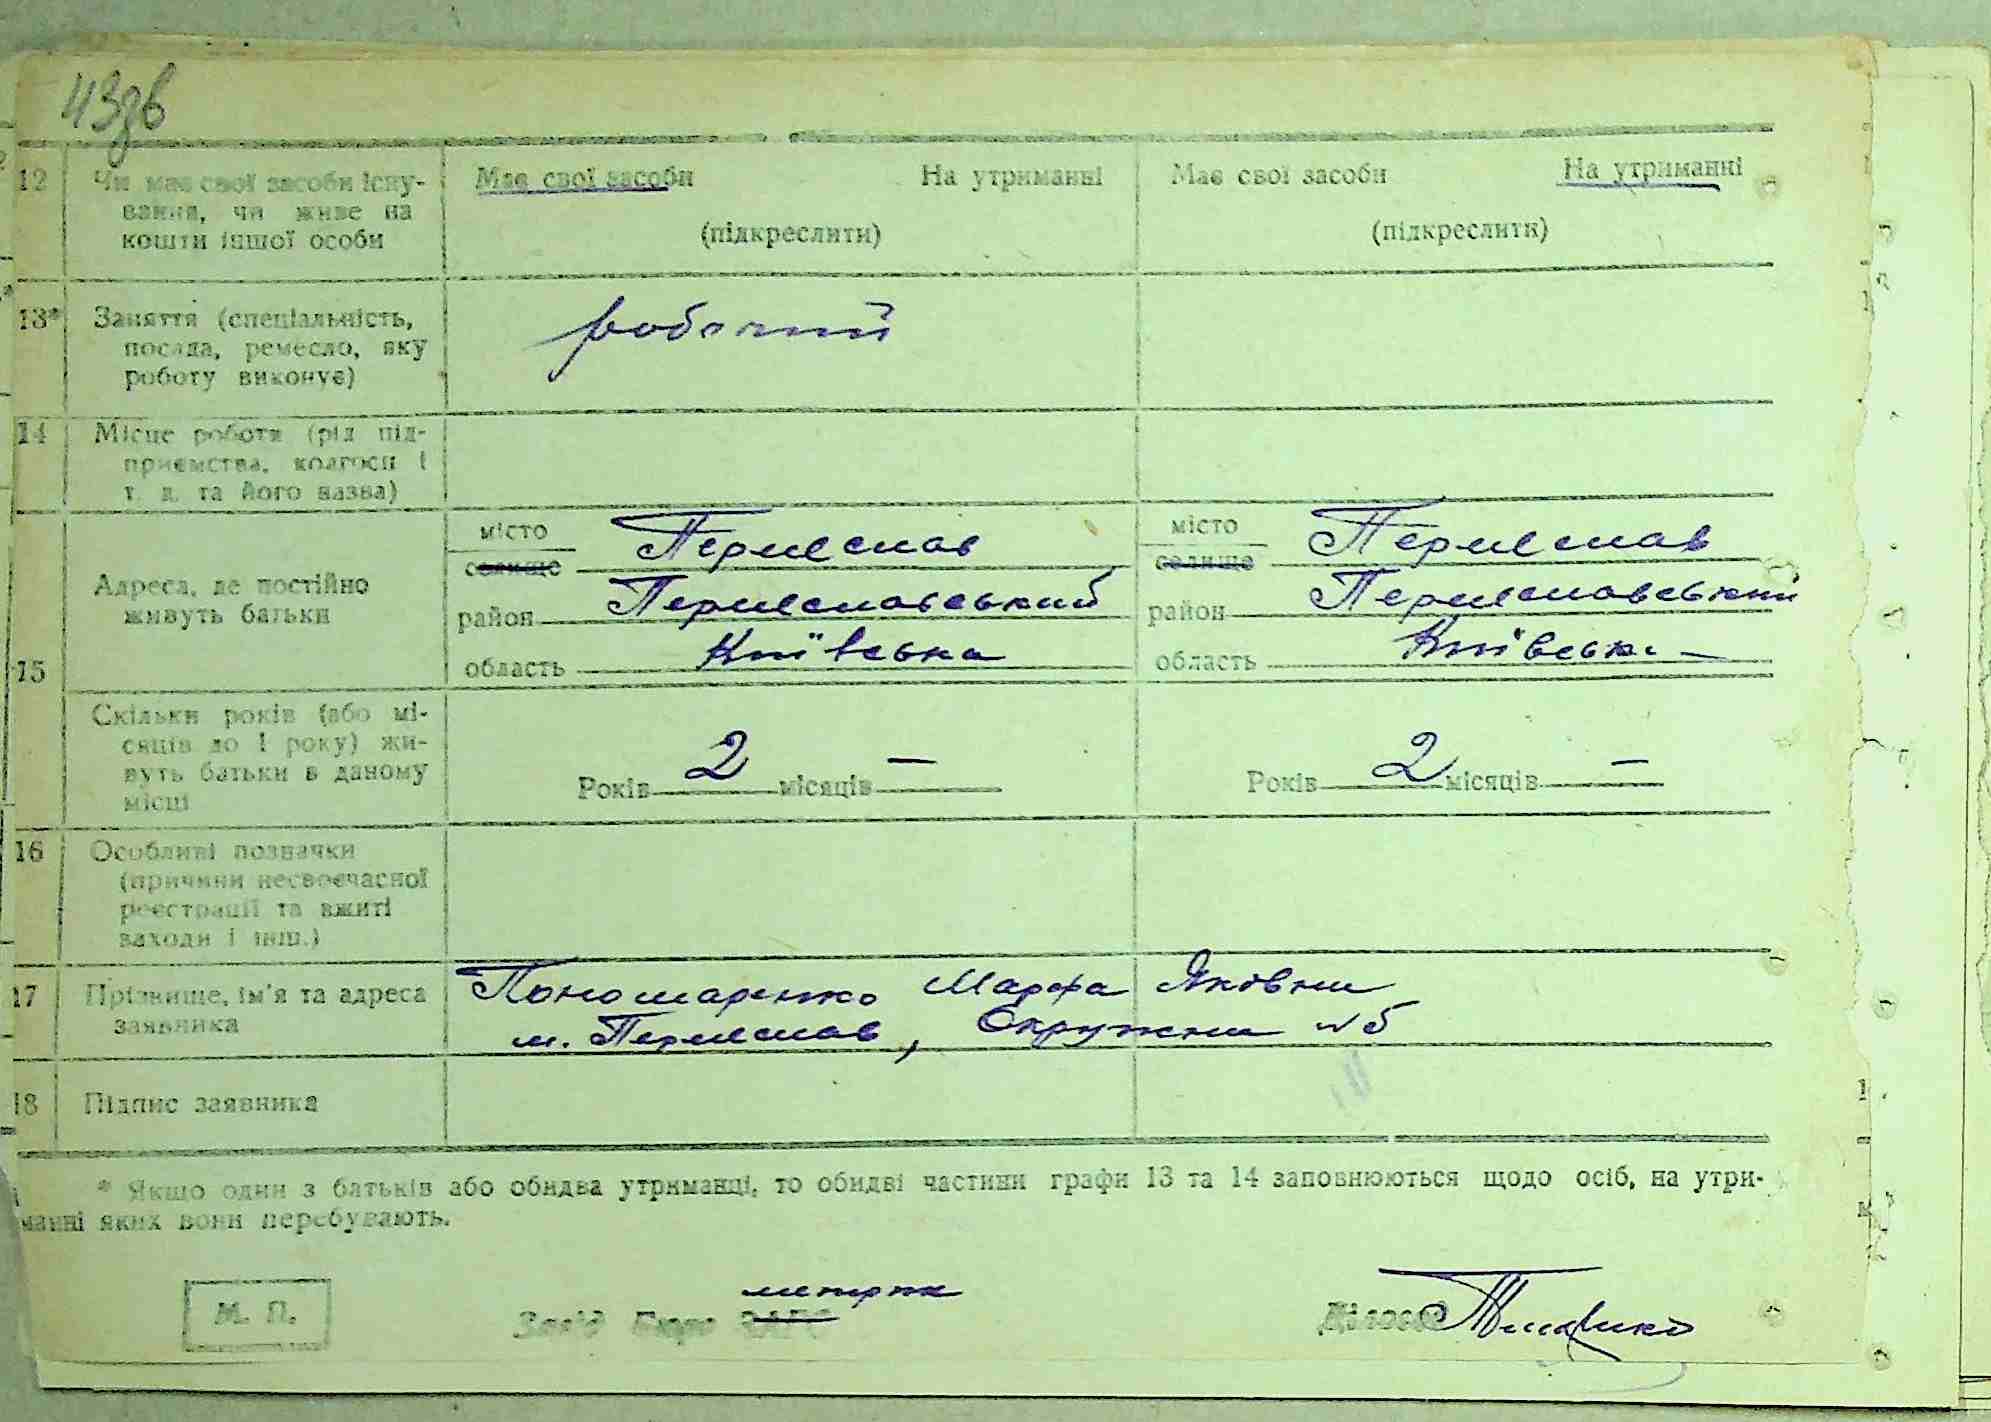 43зв
12 Чи має свої засоби існу- Має свої засоби На утриманні Має свої засоби На утриманні
вання, чи живе на
кошти іншої особи (підкреслити) (підкреслити)
13* Заняття (спеціальність, робочий
посада, ремесло, яку
роботу виконує)
14 Місце роботи (рід під-
приємства, колгосп і
т. д. та його назва)
15 Адреса, де постійно
живуть батьки
місто Переяслав місто Переяслав
селище селище
район Переяславський район Переяславський
область Київська область Київська
Скільки років (або мі-
сяців до 1 року) жи-
вуть батьки в даному
місці
Років 2 місяців — Років 2 місяців —
16 Особливі позначки
(причини несвоєчасної
реєстрації та вжиті
заходи і інш.)
17 Прізвище, ім'я та адреса Пономаренко Марфа Яковна
заявника м. Переяслав, Окружна №5
18 Підпис заявника
* Якщо один з батьків або обидва утриманці, то обидві частини графи 13 та 14 заповнюються щодо осіб, на утри-
манні яких вони перебувають.
М. П. Бюро ЗАГС